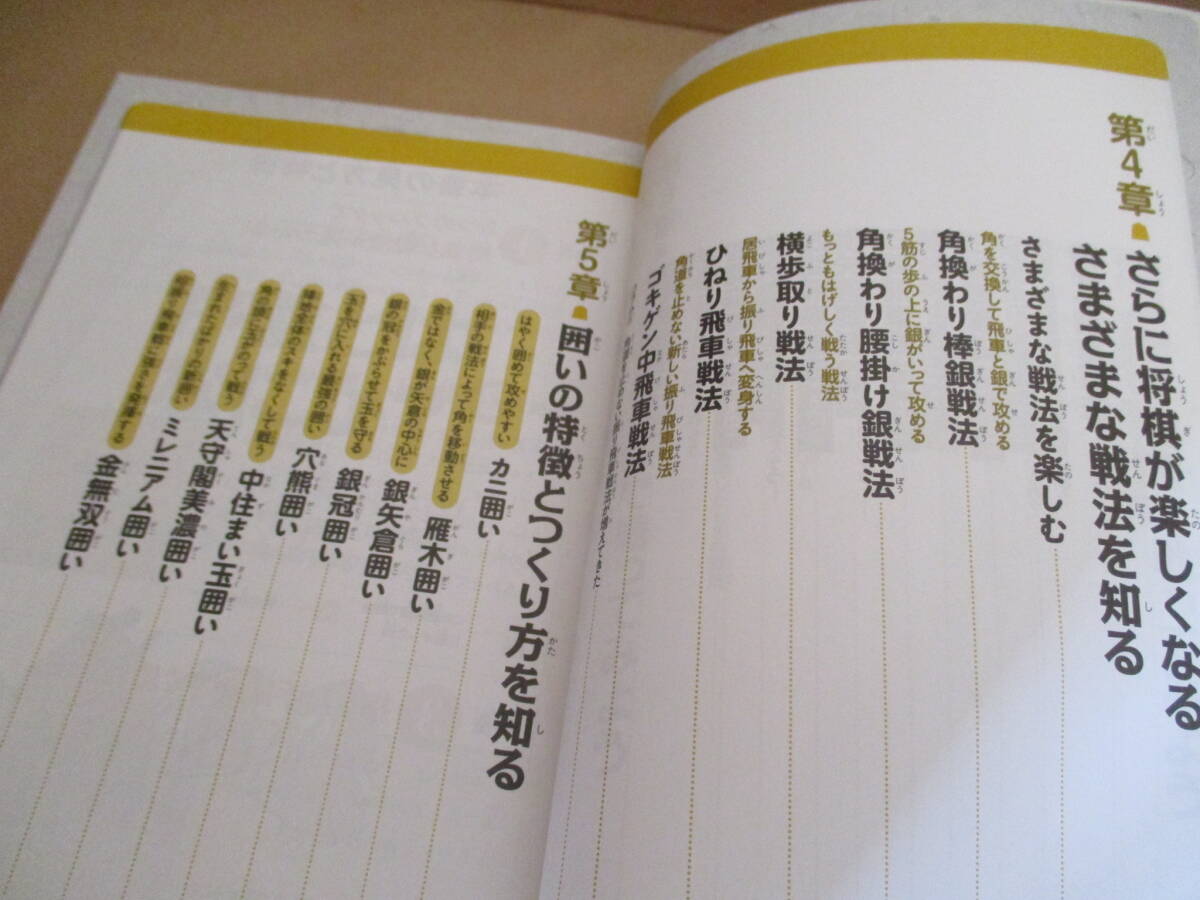 第4章 さらに将棋が楽しくなる
さまざまな戦法を知る
さまざまな戦法を楽しむ
角を交換して飛車と銀で攻める
角換わり棒銀戦法
5筋の歩の上に銀がいって攻める
角換わり腰掛け銀戦法
もっともはげしく戦う戦法
横歩取り戦法
居飛車から振り飛車へ変身する
ひねり飛車戦法
角道を止めない新しい振り飛車戦法
ゴキゲン中飛車戦法
第5章 囲いの特徴とつくり方を知る
はやく囲めて攻めやすい
カニ囲い
相手の戦法によって角を移動させる
雁木囲い
金ではなく、銀が矢倉の中心に
銀矢倉囲い
銀の冠をかぶらせて玉を守る
銀冠囲い
玉を穴に入れる最強の囲い
穴熊囲い
陣地全体のスキをなくして戦う
中住まい玉囲い
角の頭に玉がのって戦う
天守閣美濃囲い
生まれたばかりの新囲い
ミレニアム囲い
相振り飛車戦に強さを発揮する
金無双囲い